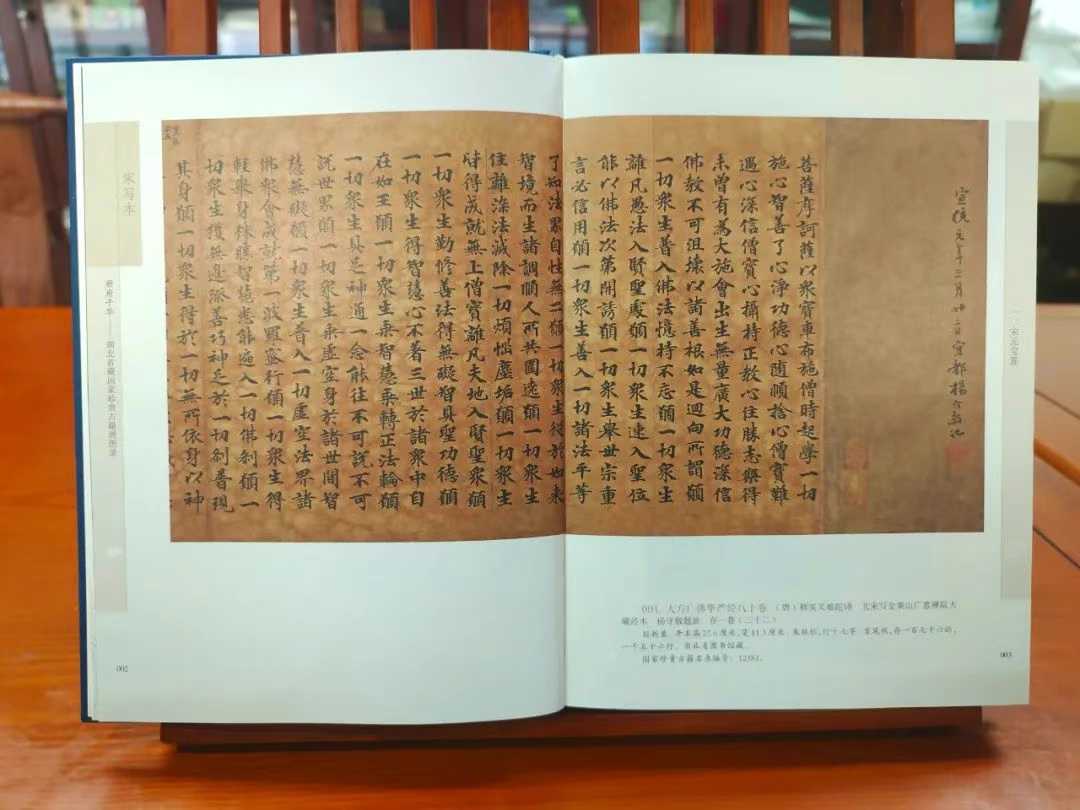 宣統元年三月廿二日宜都楊守敬記
菩薩摩訶薩以衆寶車布施僧時起學一切
施心智善了心淨功德心隨順捨心僧寶難
遇心深信僧寶心攝持正教心住勝志樂得
未曾有為大施會出生無量廣大功德深信
佛教不可沮壞以諸善根如是迴向所謂願
一切衆生普入佛法憶持不忘願一切衆生
離凡愚法入賢聖處願一切衆生速入聖位
能以佛法次第開誘願一切衆生舉世宗重
言必信用願一切衆生善入一切諸法平等
了知法界自性無二願一切衆生從於如来
智境而生諸調順人所共圍遶願一切衆生
住離染法滅除一切煩惱塵垢願一切衆生
皆得成就無上僧寶離凡夫地入賢聖衆願
一切衆生勤修善法得無礙智具聖功德願
一切衆生得智慧心不著三世於諸衆中自
在如王願一切衆生乘智慧乘轉正法輪願
一切衆生具足神通一念能往不可說不可
說世界願一切衆生乘虛空身於諸世間智
慧無礙願一切衆生普入一切虛空法界諸
佛衆會成就第一波羅蜜行願一切衆生得
輕舉身殊勝智慧悉能遍入一切佛刹願一
切衆生獲無邊際善巧神足於一切刹普現
其身願一切衆生得於一切無所依身以神
宋写本
册府千华——湖北省藏国家珍贵古籍展图录
002
001 大方广佛华严经八十卷 （唐）释实叉难陀译 北宋写金粟山广惠禅院大
藏经本 杨守敬题跋 存一卷（三十二）
国家珍贵古籍名录编号：12361。
003